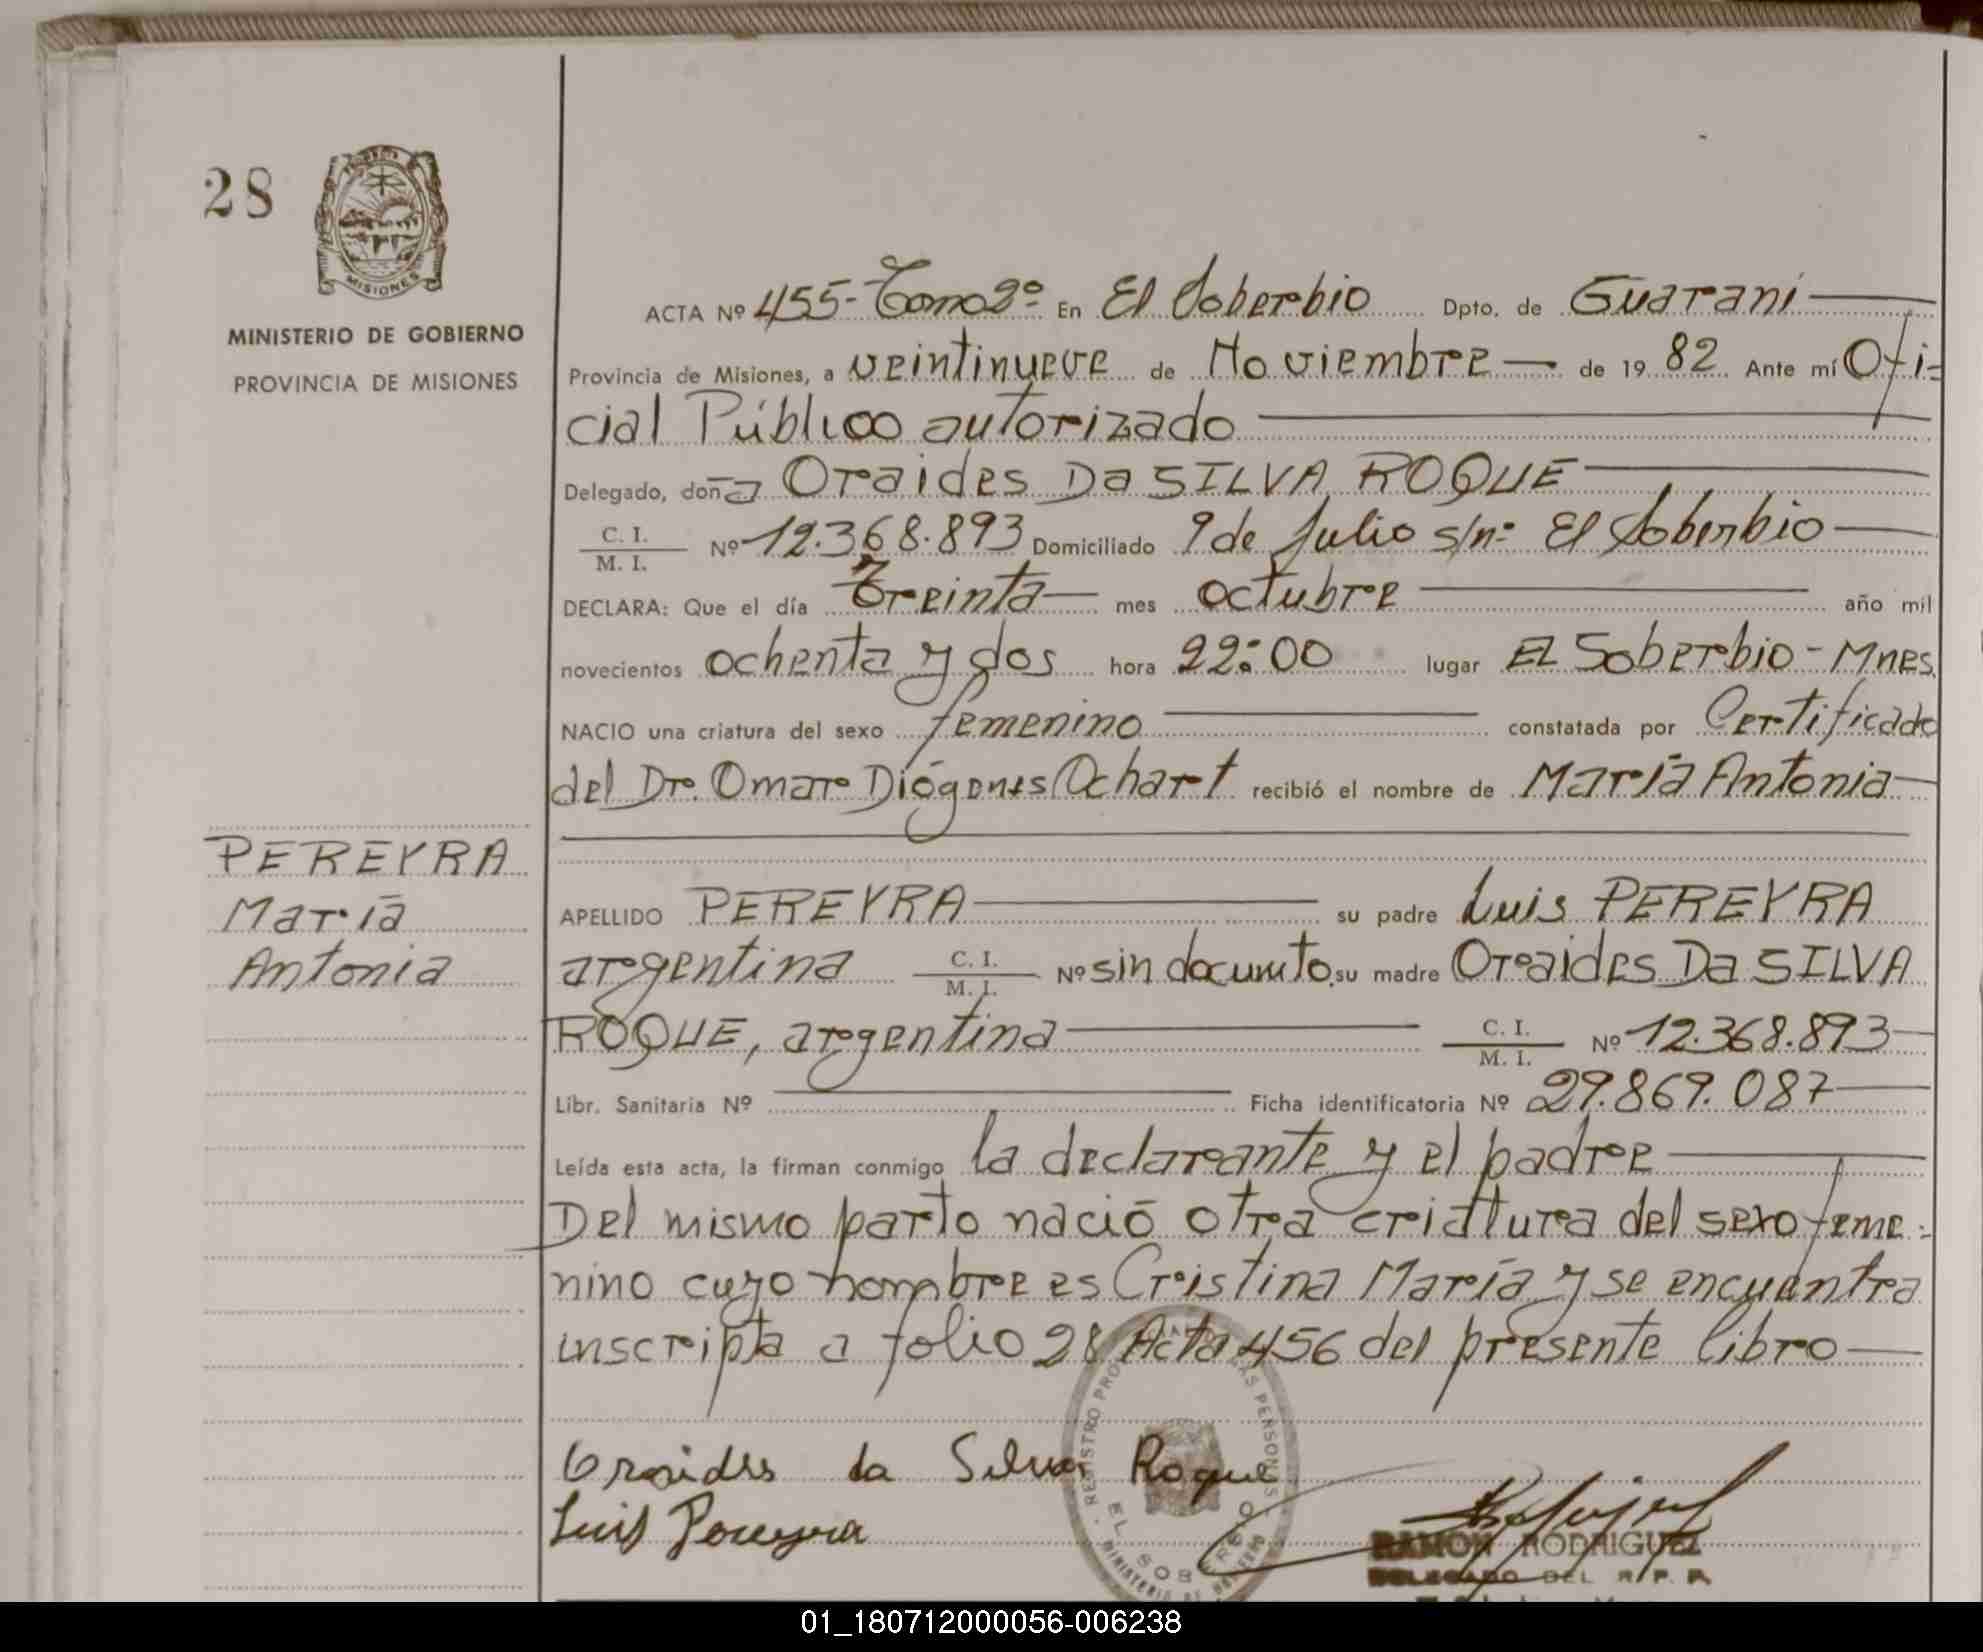 28
MISIONES
MINISTERIO DE GOBIERNO
PROVINCIA DE MISIONES
ACTA Nº 455-Tomo2º En El Soberbio Dpto. de Guaraní
Provincia de Misiones, a veintinueve de Noviembre de 19 82 Ante mí Ofi=
cial Público autorizado
Delegado, doña Oraides Da SILVA ROQUE
C. I.
M. I. Nº 12.368.893 Domiciliado 9 de Julio s/nº El Soberbio
DECLARA: Que el día Treinta mes octubre año mil
novecientos ochenta y dos hora 22:00 lugar EL Soberbio - Mnes.
NACIO una criatura del sexo femenino constatada por Certificado
del Dr. Omar Diógenes Ochart recibió el nombre de María Antonia
PEREYRA
María
Antonia
APELLIDO PEREYRA su padre Luis PEREYRA
argentina C. I. M. I. Nº sin documto. su madre Oraides Da SILVA
ROQUE, argentina C. I. M. I. Nº 12.368.893
Libr. Sanitaria Nº Ficha identificatoria Nº 29.869.087
Leída esta acta, la firman conmigo la declarante y el padre
Del mismo parto nació otra criatura del sexo feme=
nino cuyo nombre es Cristina María y se encuentra
inscripta a folio 28 Acta 456 del presente libro
Oraides da Silva Roque
Luis Pereyra
EL SOBERBIO
RAMON RODRIGUEZ
DELEGADO DEL R. P. P.
01_180712000056-006238